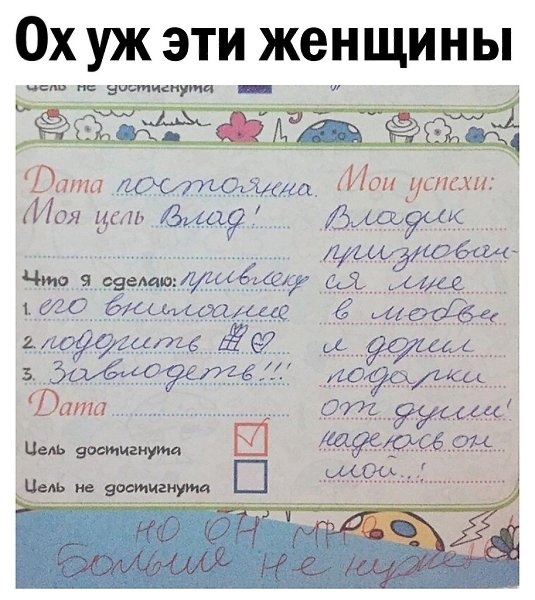 Ох уж эти женщины
Цель не достигнута
Дата постоянна
Моя цель Влад!
Что я сделаю: привлеку
1. его внимоание
2. подорить
3. Завлодеть!!!
Дата
Цель достигнута
Цель не достигнута
Мои успехи:
Владик
признован-
ся мне
в любви
и дорил
подарки
от души!
надеюсь он
мой..!
но он мне
больше не нужен